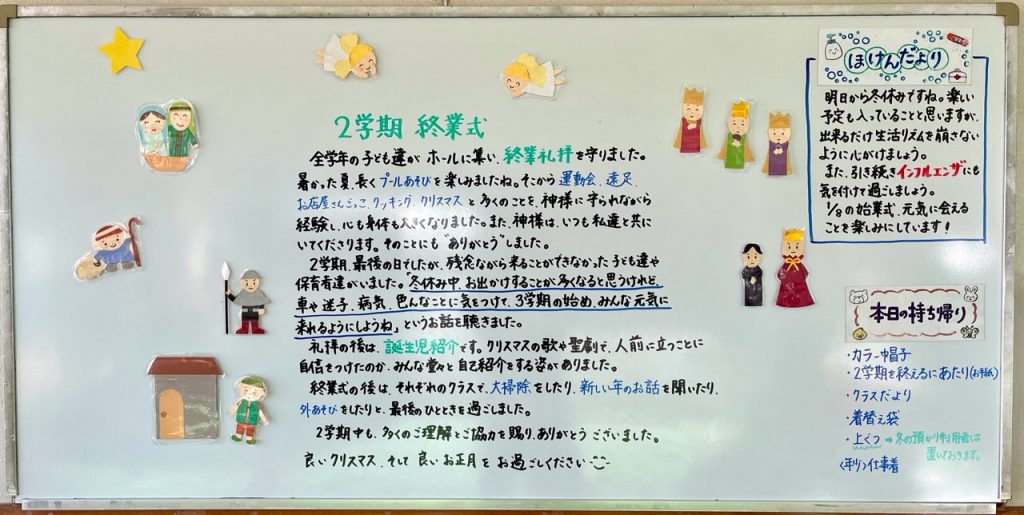 2学期 終業式
全学年の子ども達がホールに集い、終業礼拝を守りました。
暑かった夏、長くプールあそびを楽しみましたね。そこから運動会、遠足、
お店屋さんごっこ、クッキング、クリスマスと多くのことを、神様に守られながら
経験し、心も身体も大きくなりました。また、神様は、いつも私達と共に
いてくださります。そのことにも"ありがとう"しました。
2学期、最後の日でしたが、残念ながら来ることができなかった子ども達や
保育者達がいました。「冬休み中、お出かけすることが多くなると思うけれど、
車や迷子、病気、色んなことに気をつけて、3学期の始め、みんな元気に
来れるようにしようね」というお話を聴きました。
礼拝の後は、誕生児紹介です。クリスマスの歌や聖劇で、人前に立つことに
自信をつけたのか、みんな堂々と自己紹介をする姿がありました。
終業式の後は、それぞれのクラスで、大掃除をしたり、新しい年のお話を聞いたり、
外あそびをしたりと、最後のひとときを過ごしました。
2学期中も、多くのご理解とご協力を賜り、ありがとうございました。
良いクリスマス、そして良いお正月をお過ごしください
ほけんだより
明日から冬休みですね。楽しい
予定も入っていることと思いますが、
出来るだけ生活リズムを崩さない
ように心がけましょう。
また、引き続きインフルエンザにも
気を付けて過ごしましょう。
1/8の始業式、元気に会える
ことを楽しみにしています!
本日の持ち帰り
・カラー帽子
・2学期を終えるにあたり(お手紙)
・クラスだより
・着替え袋
・上ぐつ→冬の預かり利用者は
置いておきます。
<年少>仕事着